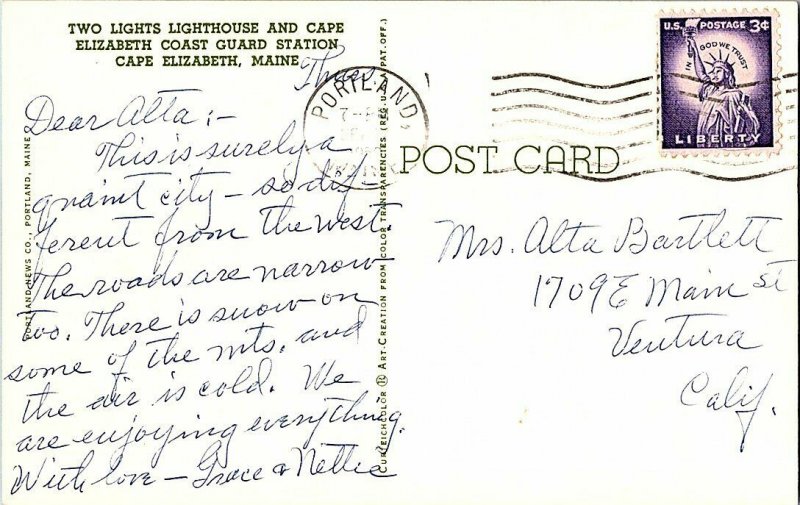 TWO LIGHTS LIGHTHOUSE AND CAPE
ELIZABETH COAST GUARD STATION
CAPE ELIZABETH, MAINE
Thurs.
Dear Alta:-
This is surely a
quaint city - so dif-
ferent from the west.
The roads are narrow
too. There is snow on
some of the mts. and
the air is cold. We
are enjoying everything.
With love - Grace & Nettie
PORTLAND NEWS CO., PORTLAND, MAINE
CURTEICHCOLOR ® ART-CREATION FROM COLOR TRANSPARENCIES (REG. U.S.A. PAT. OFF.)
POST CARD
PORTLAND
U.S. POSTAGE 3¢
IN GOD WE TRUST
LIBERTY
Mrs. Alta Bartlett
1709 E Main St
Ventura
Calif.